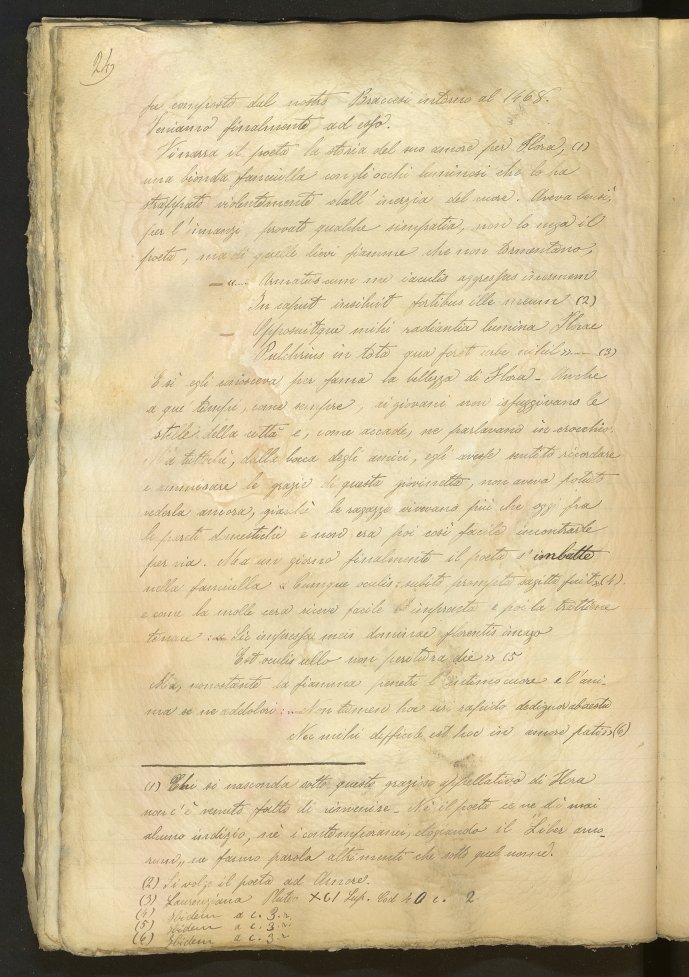 24)
fu composto dal nostro Braccesi intorno al 1468.
Veniamo finalmente ad esso.
Vi narra il poeta la storia del suo amore per Flora, (1)
una bionda fanciulla con gli occhi luminosi che lo ha
strappato violentemente dall' inerzia del cuore. Aveva bensì,
per l' innanzi, provato qualche simpatia, non lo nega il
poeta, ma di quelle lievi fiamme che non tormentano;
— «... Armatus cum me iaculis aggressus inermem
In caput insiluit fortibus ille meum (2)
— Opposuitque mihi radiantia lumina Florae
Pulchrius in tota qua foret urbe nihil » — (3)
E sì egli conosceva per fama la bellezza di Flora - Anche
a que' tempi, come sempre, ai giovani non isfuggivano le
stelle della città e, come accade, ne parlavano in crocchio.
Ma tuttochè, dalla bocca degli amici, egli avesse sentito ricordare
e ammirare le grazie di questa giovinetta, non aveva potuto
vederla ancora, giacchè le ragazze vivevano più che oggi fra
le pareti domestiche e non era poi così facile incontrarle
per via. Ma un giorno finalmente il poeta s' imbatte
nella fanciulla « Cumque oculis: subito prompta sagitta fuit » (4)
e come la molle cera riceve facile l' impronta e poi la trattiene
tenace: « Sic impressa meis dominae florentis imago
Est oculis ullo non peritura die » (5
Ma, nonostante la fiamma penetri l' intimo cuore e l' ani-
ma se ne addolori: — Non tamen hoc uri rapido dedignor ab aestu
Nec mihi difficile est hoc in amore pati » (6)
(1) Chi si nasconda sotto questo grazioso appellativo di Flora
non c' è venuto fatto di rinvenire - Nè il poeta ce ne dà mai
alcuno indizio, nè i contemporanei, elogiando il "Liber amo-
rum", ne fanno parola altrimenti che sotto quel nome.
(2) Si volge il poeta ad Amore.
(3) Laurenziana Pluteo XCI Sup. Cod 40 c. 2
(4) Ibidem a c. 3 r.
(5) Ibidem a c. 3 r.
(6) Ibidem a c. 3 r